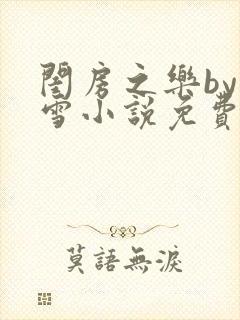 閨房之樂by
雪小說免費
莫語無淚